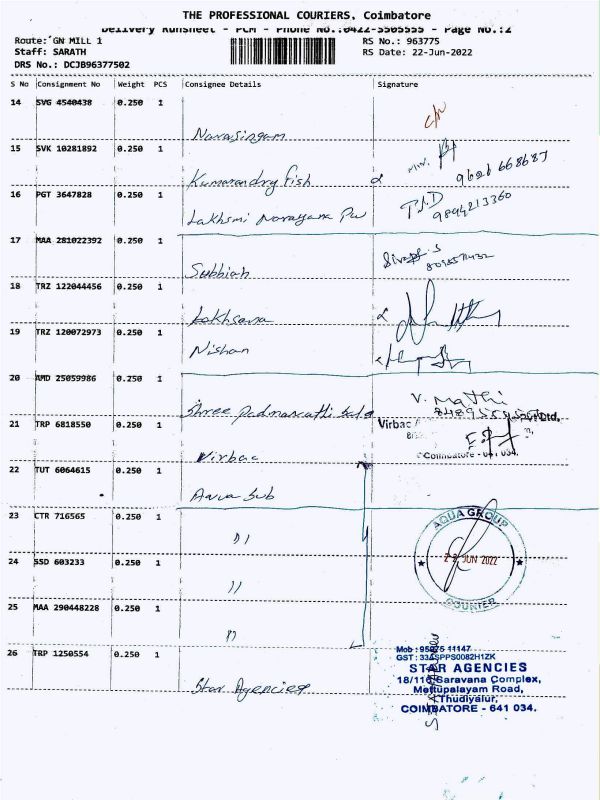 THE PROFESSIONAL COURIERS, Coimbatore
Delivery Runsheet - PCM - Phone No.:0422-3505555 - Page No.:2
Route: GN MILL 1
RS No.: 963775
Staff: SARATH
RS Date: 22-Jun-2022
DRS No.: DCJB96377502
S No Consignment No Weight PCS Consignee Details Signature
14 SVG 4540438 0.250 1
Narasingam
15 SVK 10281892 0.250 1
Kumarandry fish 9626 668687
16 PGT 3647828 0.250 1
Lakhsmi Narayana T.J.D
9894213360
17 MAA 281022392 0.250 1
Subbiah
18 TRZ 122044456 0.250 1
Lakhsana
19 TRZ 120072973 0.250 1
Nishan
20 AMD 25059986 0.250 1
Shree V. Mathi
21 TRP 6818550 0.250 1
Virbac Ltd.
Virbac
Coimbatore - 641 034.
22 TUT 6064615 0.250 1
Aqua Sub
23 CTR 716565 0.250 1
AQUA GROUP
24 SSD 603233 0.250 1
JUN 2022
25 MAA 290448228 0.250 1
COURIER
26 TRP 1250554 0.250 1
Star Agencies
STAR AGENCIES
18/110 Saravana Complex,
Mettupalayam Road,
Thudiyalur,
COIMBATORE - 641 034.